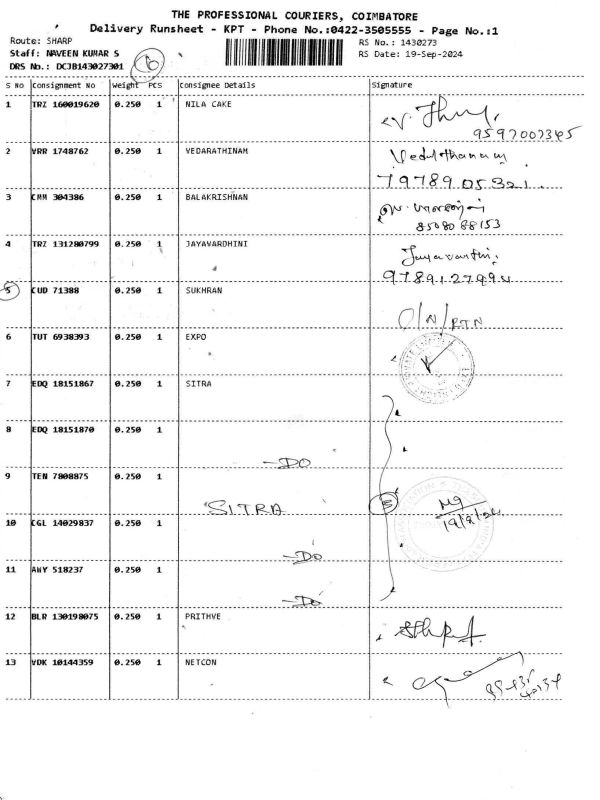 THE PROFESSIONAL COURIERS, COIMBATORE
Delivery Runsheet - KPT - Phone No.:0422-3505555 - Page No.:1
Route: SHARP
RS No.: 1430273
Staff: NAVEEN KUMAR S
RS Date: 19-Sep-2024
DRS No.: DCJB143027301
6
S No Consignment No Weight PCS Consignee Details Signature
1 TRZ 160019620 0.250 1 NILA CAKE
9597007345
2 VRR 1748762 0.250 1 VEDARATHINAM
Vedarathanam
7978905321
3 CMM 304386 0.250 1 BALAKRISHNAN
8508088153
4 TRZ 131280799 0.250 1 JAYAVARDHINI
Jayavardhini
9789127994
5 CUD 71388 0.250 1 SUKHRAN
O/N/RTN
6 TUT 6938393 0.250 1 EXPO
7 EDQ 18151867 0.250 1 SITRA
8 EDQ 18151870 0.250 1
-DO
9 TEN 7808875 0.250 1
SITRA
5
19/9/24
10 CGL 14029837 0.250 1
-DO
11 AWY 518237 0.250 1
-DO
12 BLR 130198075 0.250 1 PRITHVE
13 VDK 10144359 0.250 1 NETCON